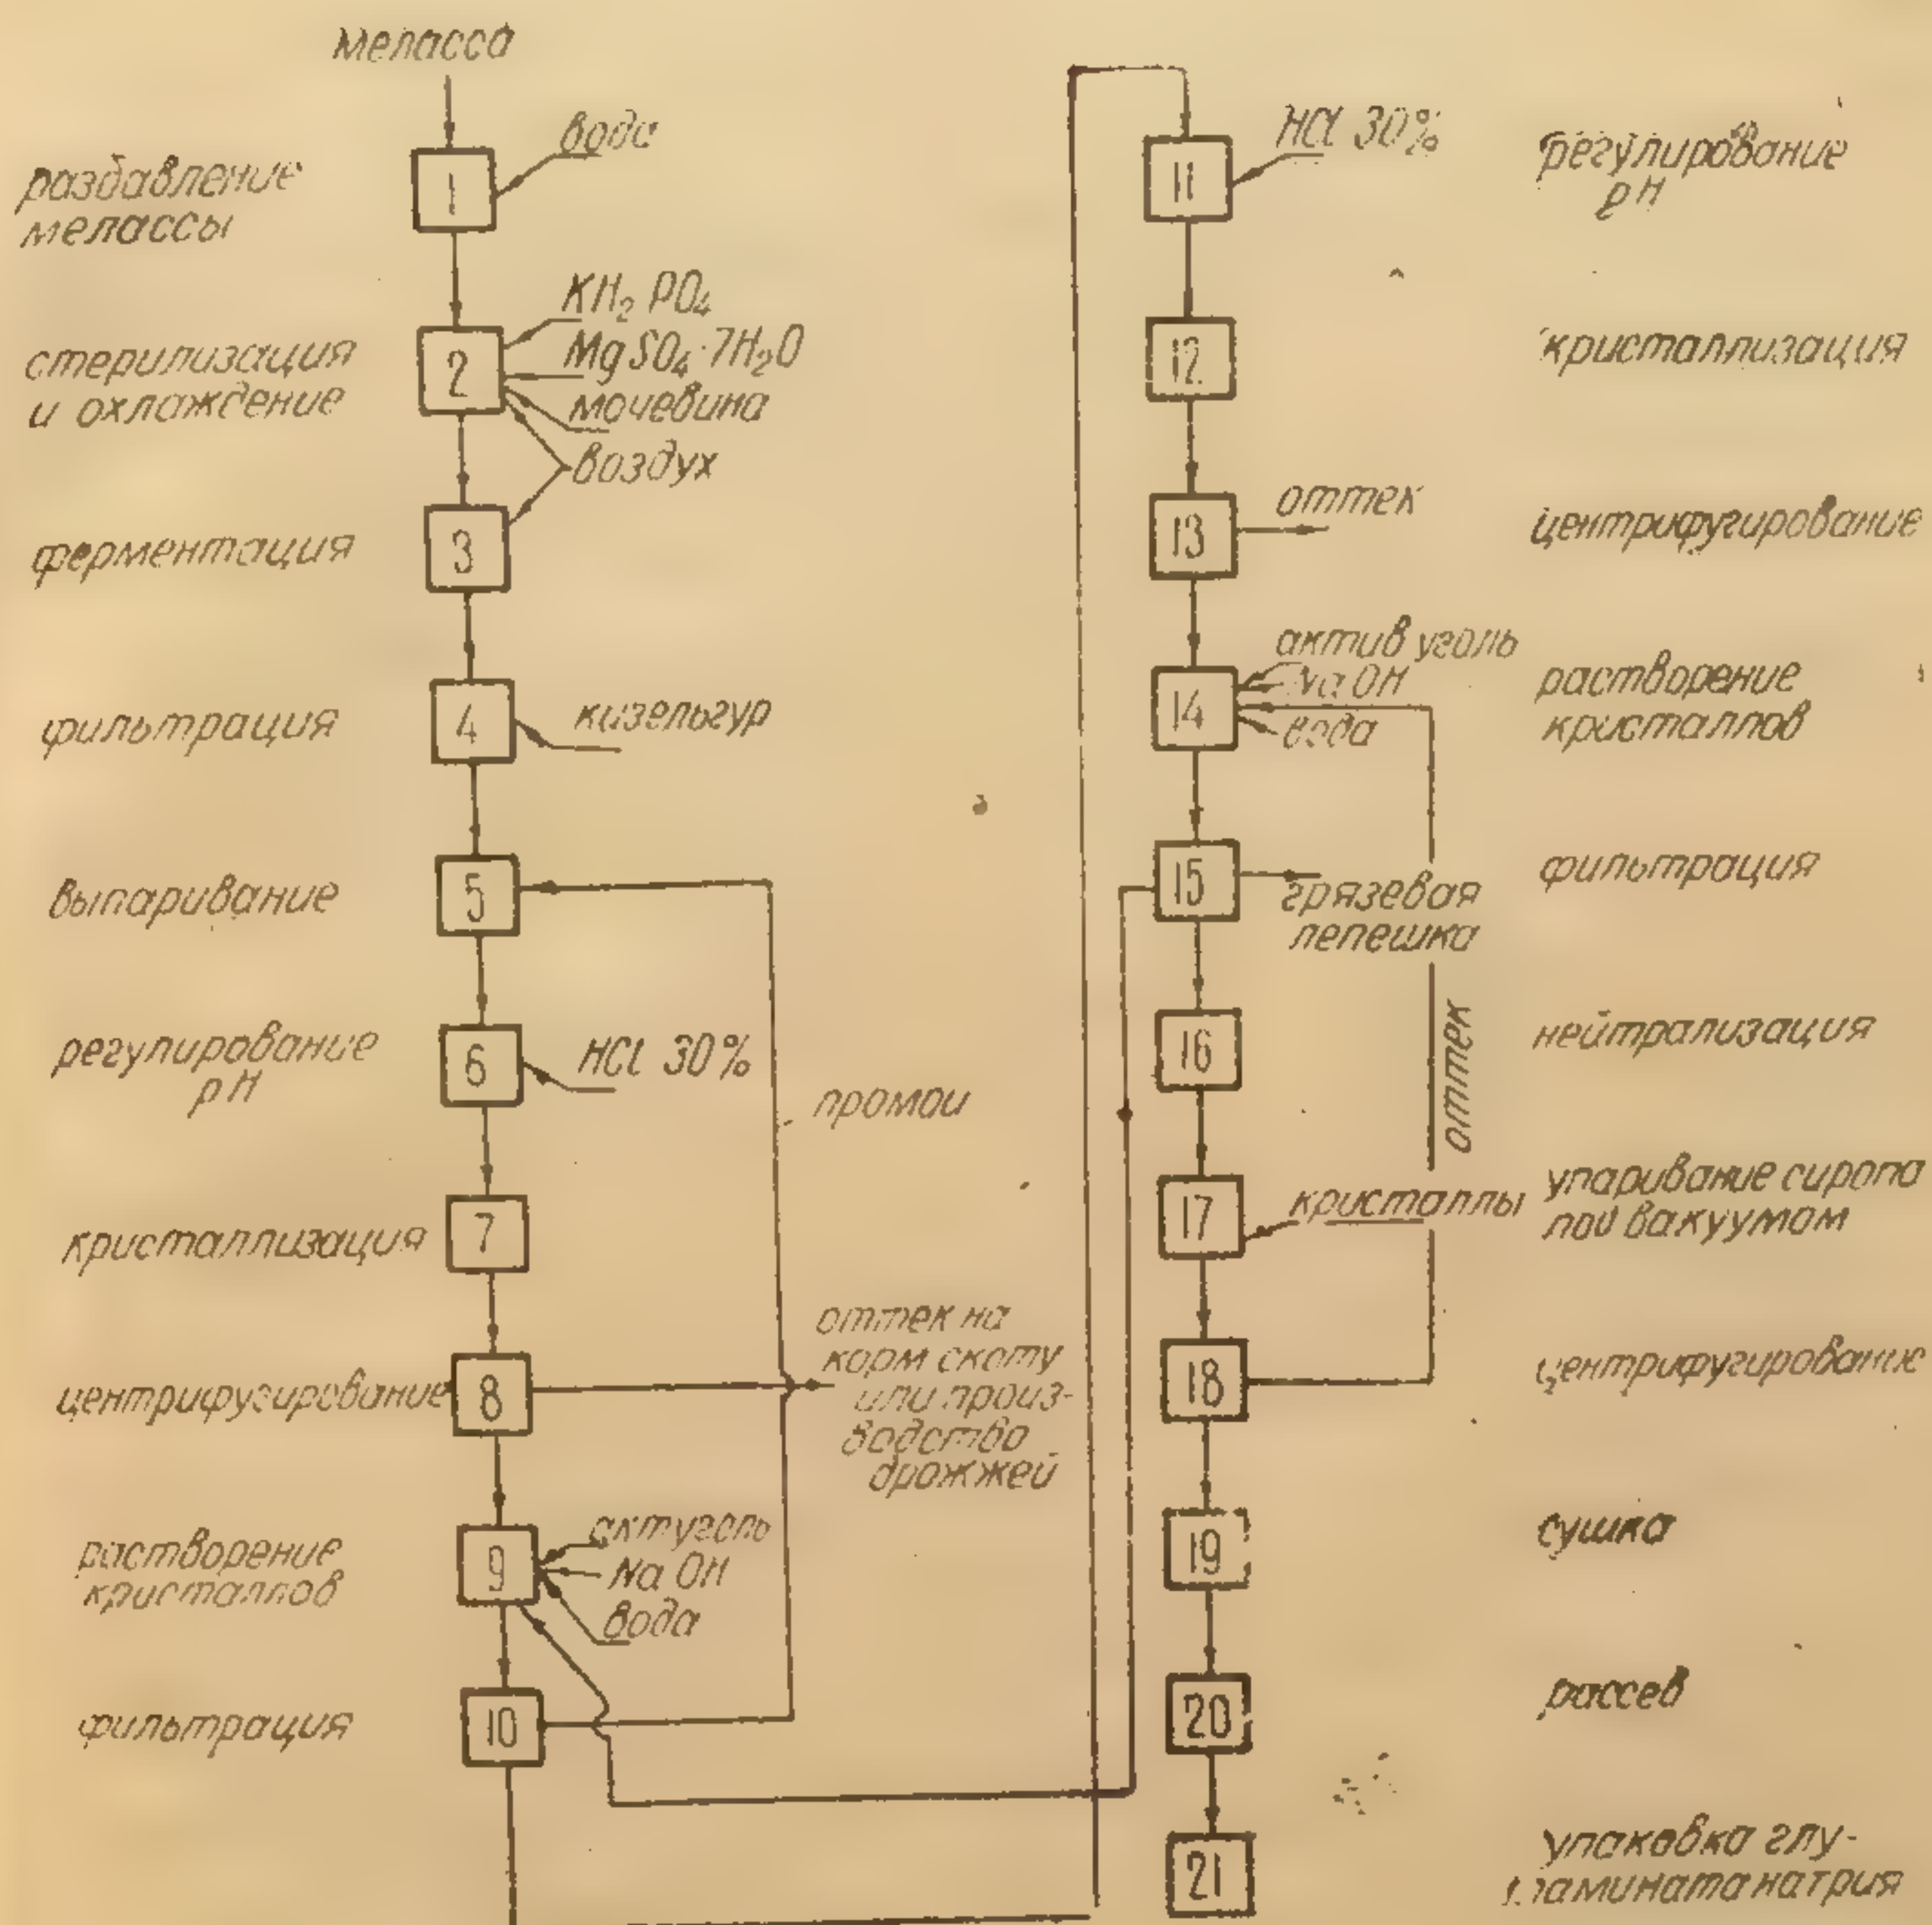 меласса
раздавление
мелассы
1
вода
стерилизация
и охлаждение
2
KH₂PO₄
MgSO₄·7H₂O
мочевина
воздух
ферментация
3
фильтрация
4
кизельгур
выпаривание
5
регулирование
pH
6
HCl 30%
промои
кристаллизация
7
центрифугирование
8
оттек на
корм скоту
или произ-
водство
дрожжей
растворение
кристаллов
9
акт уголь
NaOH
вода
фильтрация
10
11
HCl 30%
регулирование
pH
12
кристаллизация
13
оттек
центрифугирование
14
актив уголь
NaOH
вода
растворение
кристаллов
15
грязевая
лепешка
фильтрация
16
оттек
нейтрализация
17
кристаллы
упаривание сиропа
под вакуумом
18
центрифугирование
19
сушка
20
рассев
21
упаковка глу-
тамината натрия